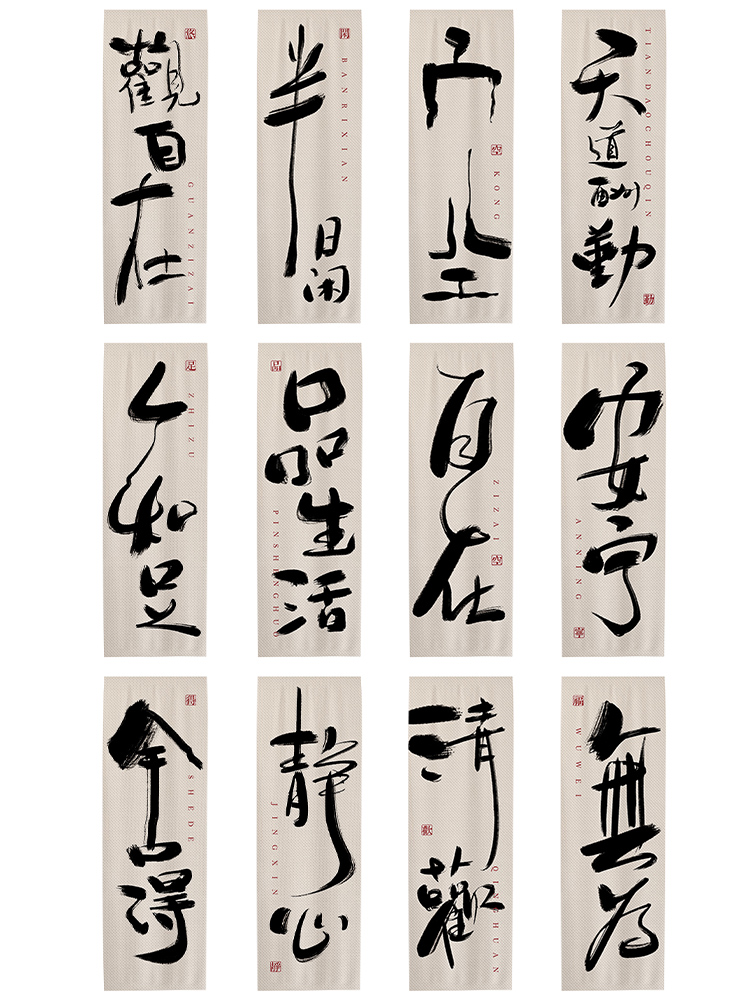 觀自在
GUANZIZAI
半日闲
BANRIXIAN
空
空
KONG
天道酬勤
TIANDAOCHOUQIN
勤
知足
足
ZHIZU
品生活
PINSHENGHUO
自在
ZIZAI
空
安宁
ANNING
寧
舍得
得
SHEDE
静心
JINGXIN
靜
清觀
QINGHUAN
無为
WUWEI